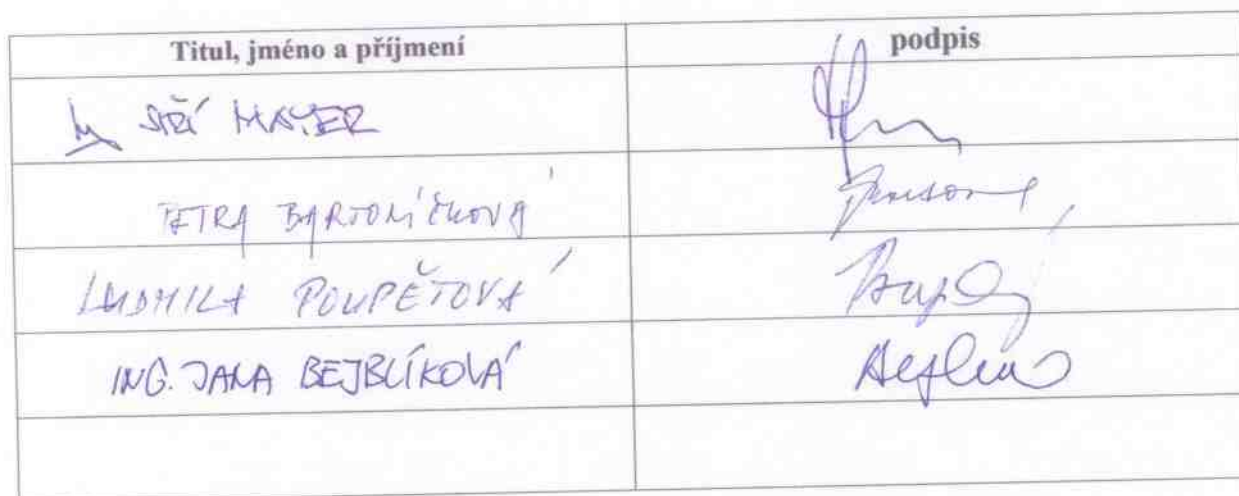 Titul, jméno a příjmení podpis
JIŘÍ MAYER
PETRA BARTONÍČKOVÁ
LUDMILA POUPĚTOVÁ
ING. JANA BEJBLÍKOVÁ